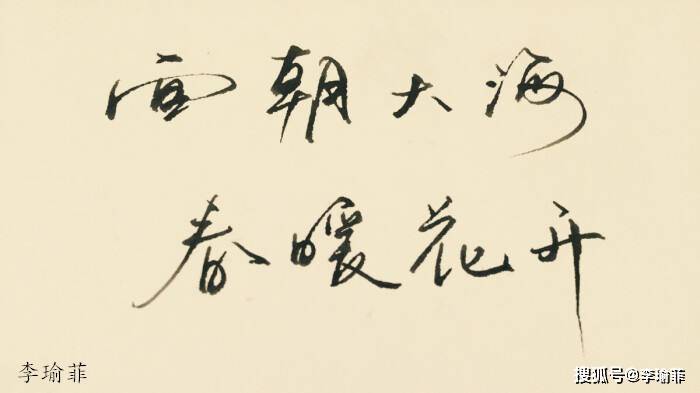 面朝大海
春暖花开
李瑜菲
搜狐号@李瑜菲